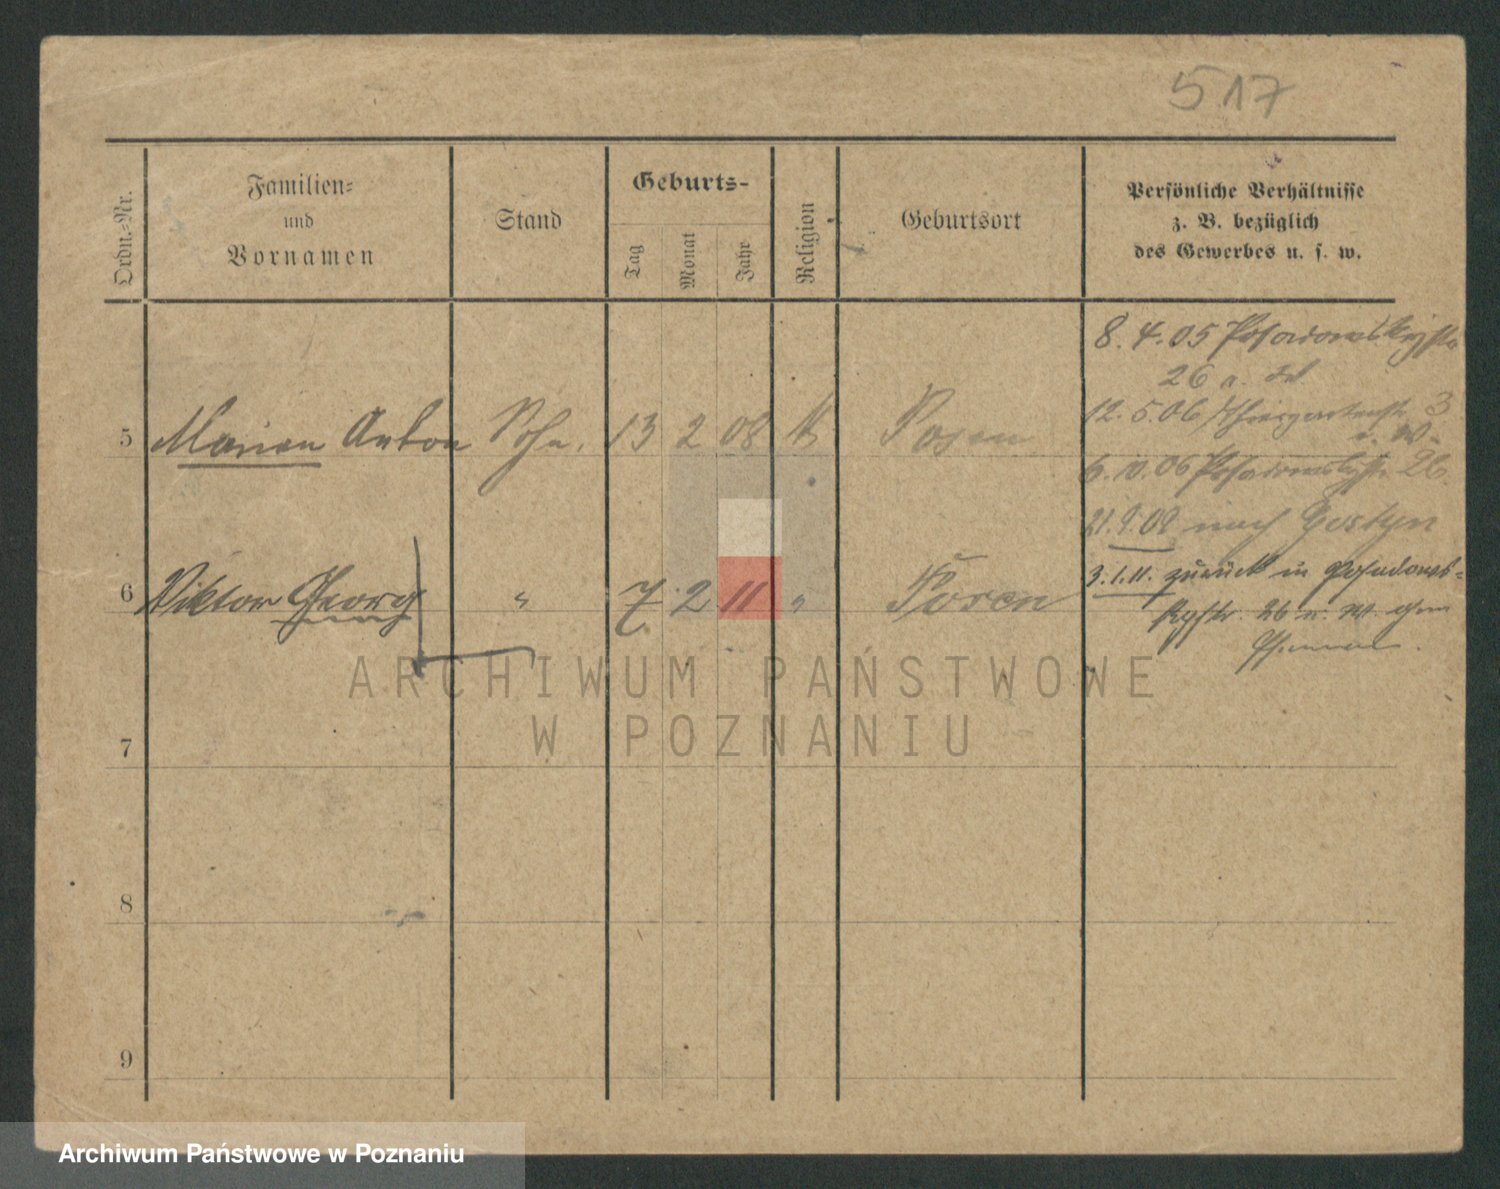 517
Ordn.-Nr.
Familien-
und
Vornamen
Stand
Geburts-
Tag
Monat
Jahr
Religion
Geburtsort
Persönliche Verhältnisse
z. B. bezüglich
des Gewerbes u. s. w.
8. 4. 05 Posadowskystr.
26
5 Marian Anton Sohn. 13 2 08 Posen
12. 5. 06 3
06 Posadowskystr. 26.
21. 9. 09 nach Gostyn
6 Viktor Georg " 7. 2 11 " Posen
3. 1. 11. zurück in Posadows-
kystr. 26
7
8
9
ARCHIWUM PAŃSTWOWE
W POZNANIU
Archiwum Państwowe w Poznaniu